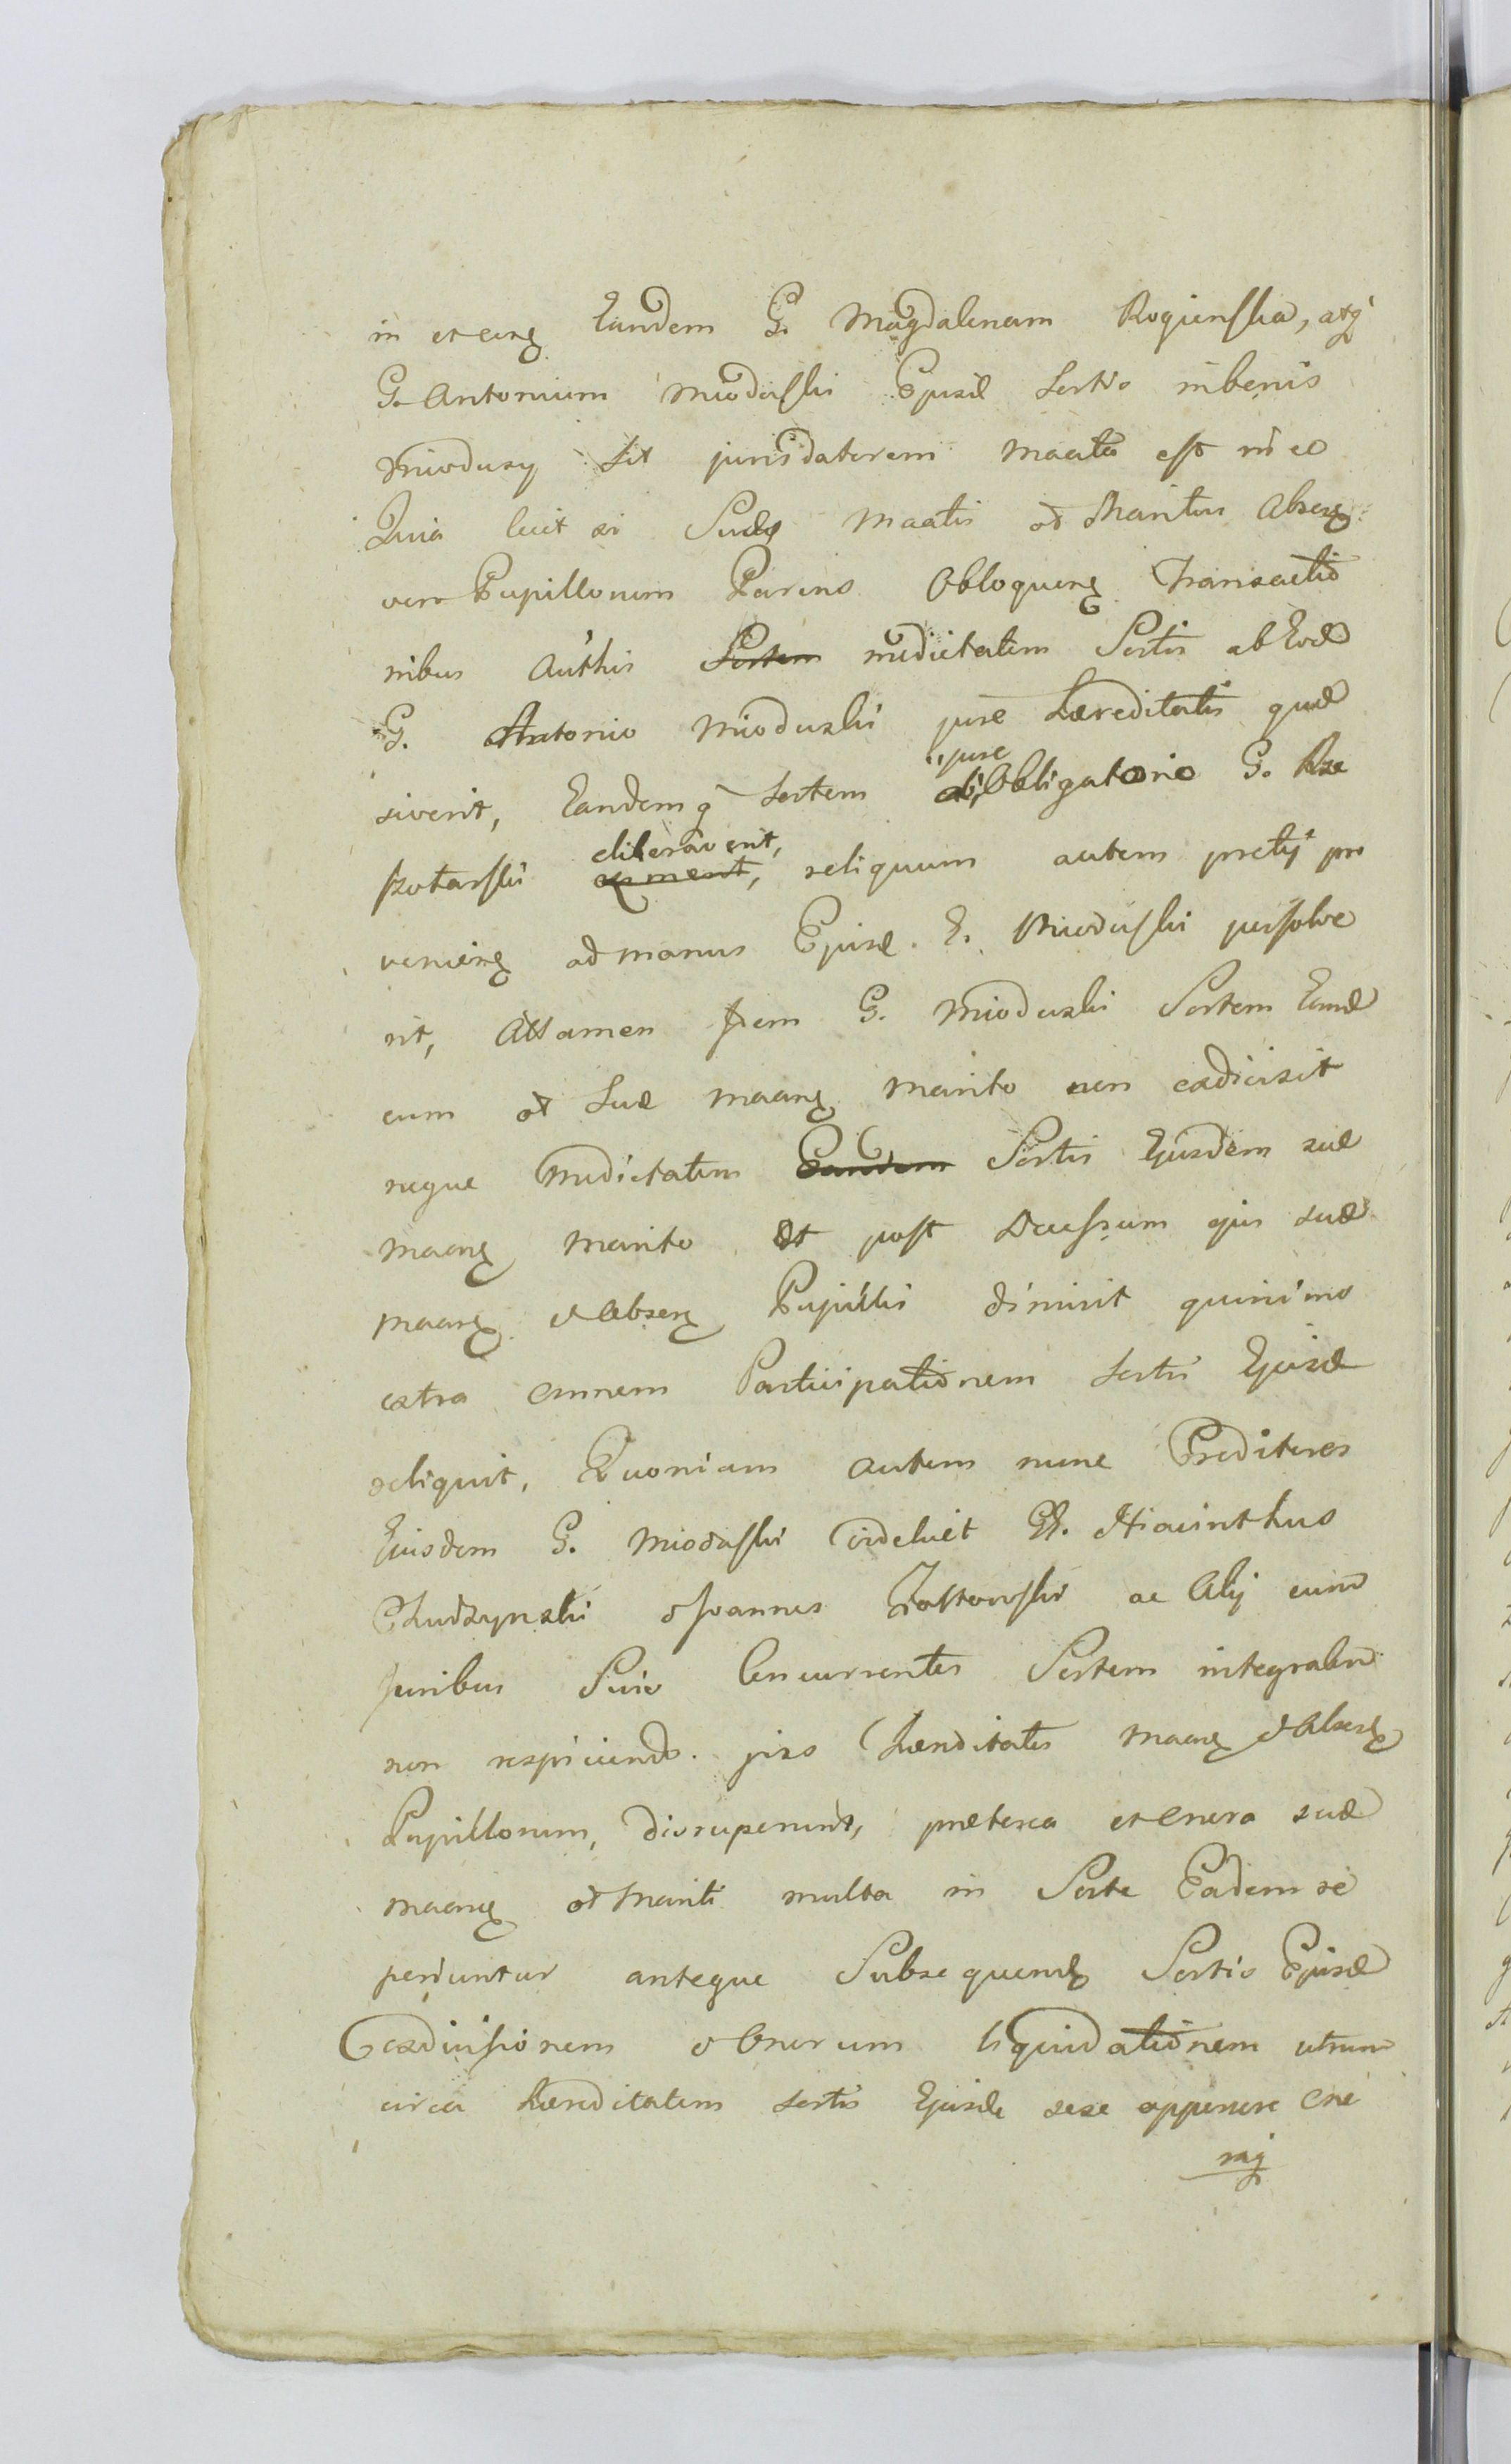 in et circ Eandem G. Magdalenam Rogienska, atq
G. Antonium Mioduski Ejusd Sortis in bonis
Mioduzy sit jurisdatorem maata est in eo
Quia licet si Sudę maatis et Maritus Absen
vero Pupillorum Parens Obloquenę Transactio
nibus Authis Sortem medietatem Sortis ab Eod
G. Antonio Mioduski jure Hæreditatis quæ
siverit, Eandemq Sortem jure Obligatorio G. Rze
szotarski eliberaverit, reliquum autem pretij pro
venienę ad manus Ejusd. G. Mioduski persolve
rit, Attamen Idem G. Mioduski Sortem Eand
cum et Suæ maanę Marito non exdivisit
neque Medietatem Eandem Sortis Ejusdem suæ
maanę Marito Et post Decessum ejus suæ
maanę et Absenę Pupillis dimisit quinimo
extra omnem Participationem Sortis Ejusd
reliquit, Quoniam autem nunc Creditores
Ejusdem G. Mioduski videlicet GG. Hiacinthus
Chudzynski et Joannes Zoltowski ac Alij cum
Juribus Suis Concurrentes Sortem integralem
non respiciendo jus Hæreditatis maanę et Absenę
Pupillorum, disrupuerunt, præterea et onera suæ
maanę et Mariti multa in Sorte Eadem re
periuntur anteque Subsequendę Sortis Ejusd
exdivisionem et Onerum liquidationem utrum
circa Hæreditatem Sortis Ejusd sese opponere one